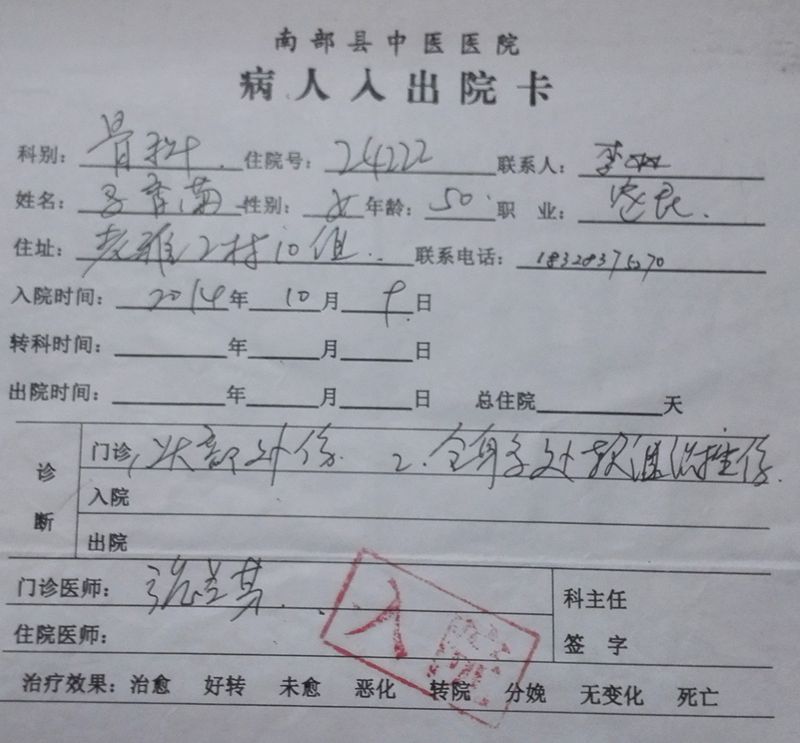 南部县中医医院
病人入出院卡
科别: 骨科 住院号: 24222 联系人: 李
姓名: 性别: 女 年龄: 50 职 业: 农民
住址: 老鸦2村10组 联系电话: 18328375270
入院时间: 2014年 10月 9日
转科时间: 年 月 日
出院时间: 年 月 日 总住院 天
诊断
门诊 1.头部外伤. 2.全身多处软组织挫伤.
入院
出院
门诊医师: 科主任
住院医师: 签 字
入院
治疗效果: 治愈 好转 未愈 恶化 转院 分娩 无变化 死亡